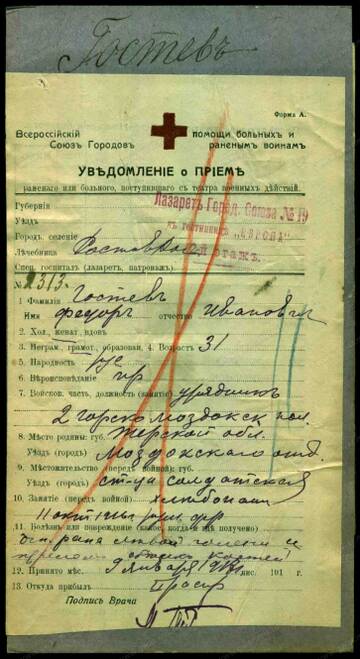 Гостевъ
Форма А.
Всероссійскій помощи больныхъ и
Союзъ Городовъ раненымъ воинамъ
УВѢДОМЛЕНІЕ о ПРІЕМѢ
раненаго или больного, поступившаго съ театра военныхъ дѣйствій.
Губернія
Лазаретъ Город. Союза № 19
Уѣздъ
въ гостиницѣ „ЕВРОПА"
Город. селеніе
этажъ.
Лѣчебница
Спец. госпиталь (лазаретъ, патронажъ).
№ 2313
1 Фамилія Гостевъ
Имя Федоръ отчество Ивановичъ
2. Хол., женат., вдовъ
3. Неграм., грамот., образован. 4. Возрастъ 31
5. Народность рус
6. Вѣроисповѣданіе пр
7. Войсков. часть, должность (занятіе) урядникъ
2 горско моздокск пол.
8. Мѣсто родины: губ. Терской обл.
Уѣздъ (городъ) Моздокскаго отд.
9. Мѣстожительство (передъ войной): губ.
Уѣздъ (городъ) ст-ца солдатская
10. Занятіе (передъ войной) хлѣбопаш
11. Болѣзнь или поврежденіе (какое, когда и гдѣ получено)
12. Принято мѣс. 9 января 191 г.
13. Откуда прибылъ
Подпись Врача